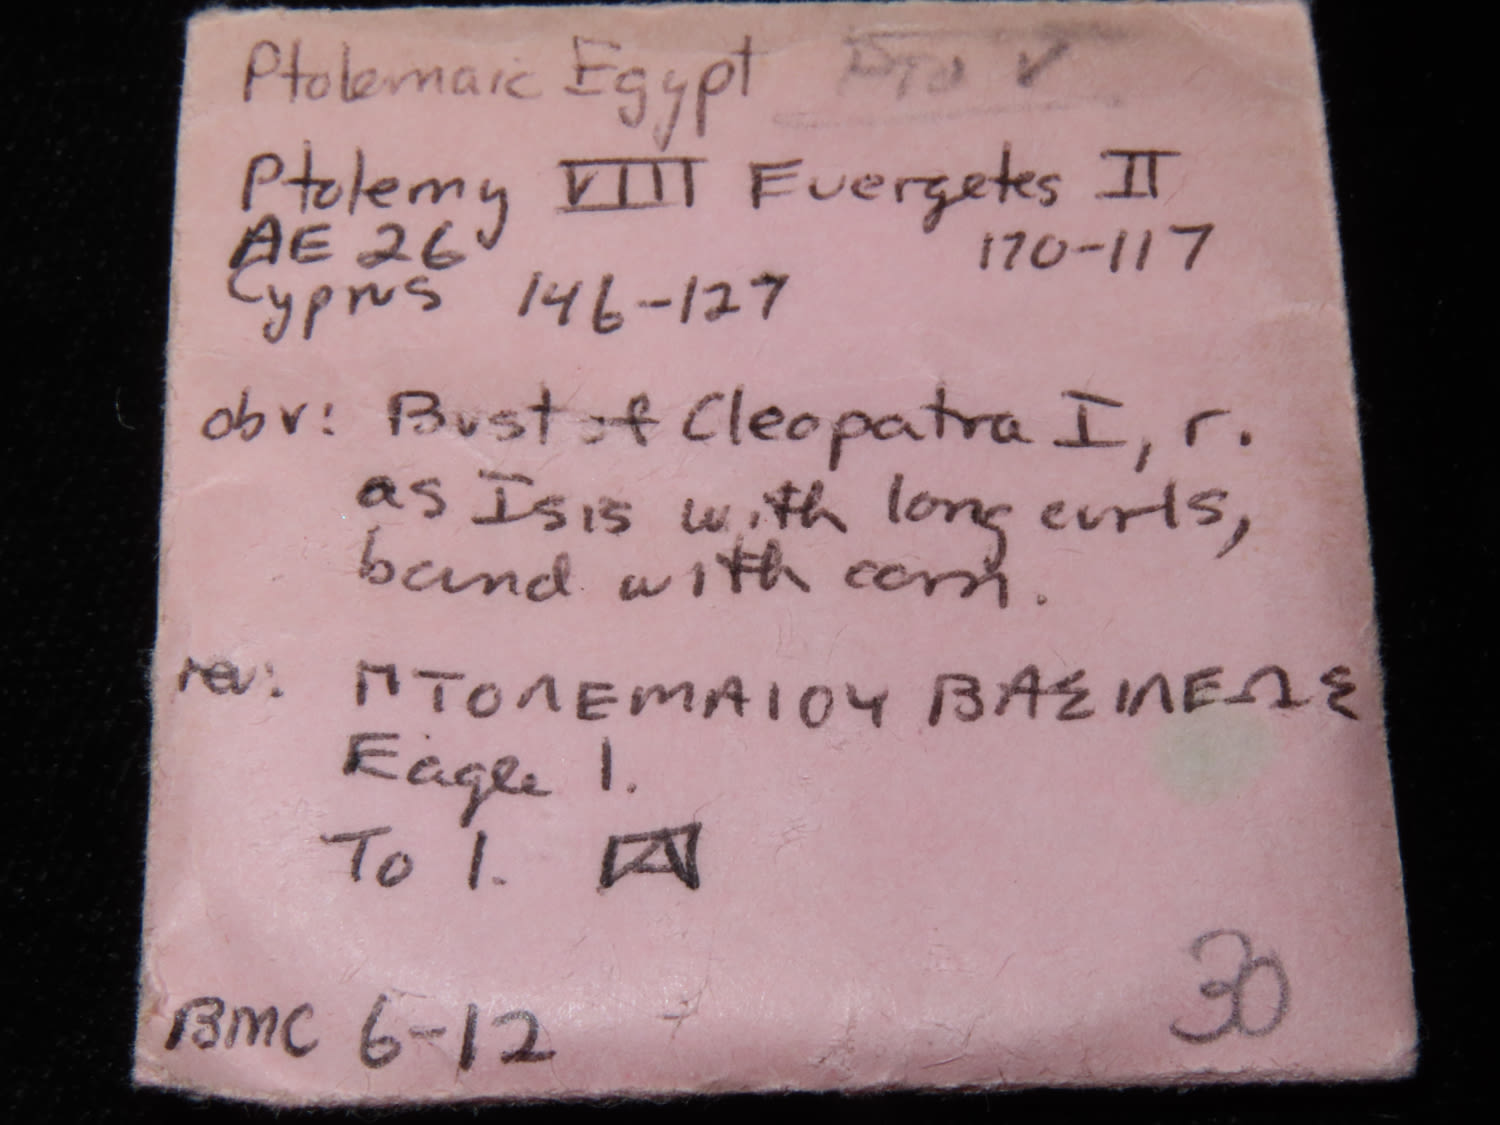 Ptolemaic Egypt
Ptolemy VIII Euergetes II
AE 26 170-117
Cyprus 146-127
obv: Bust of Cleopatra I, r.
as Isis with long curls,
band with corn.
rev: ΠΤΟΛΕΜΑΙΟΥ ΒΑΣΙΛΕΩΣ
Eagle l.
To l.
30
BMC 6-12